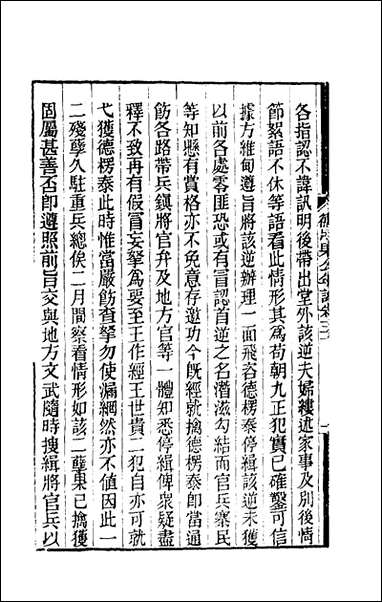 各指認不諱訊明後帶出堂外該逆夫婦縷述家事及別後情
節絮語不休等語看此情形其爲苟朝九正犯實已確鑿可信
據方維甸遵旨將該逆辦理一面飛咨德楞泰停緝該逆未獲
以前各處零匪恐或有冒認首逆之名潛滋勾結而官兵寨民
等知懸有賞格亦不免意存邀功今旣經就擒德楞泰卽當通
飭各路帶兵鎭將官弁及地方官等一體知悉停緝俾衆疑盡
釋不致再有假冒妄拏爲要至王作經王世貴二犯自亦可就
弋獲德楞泰此時惟當嚴飭查拏勿使漏網然亦不値因此一
二殘孽久駐重兵總俟二月間察看情形如該二孽果已擒獲
固屬甚善否卽遵照前旨交與地方文武隨時搜緝將官兵以